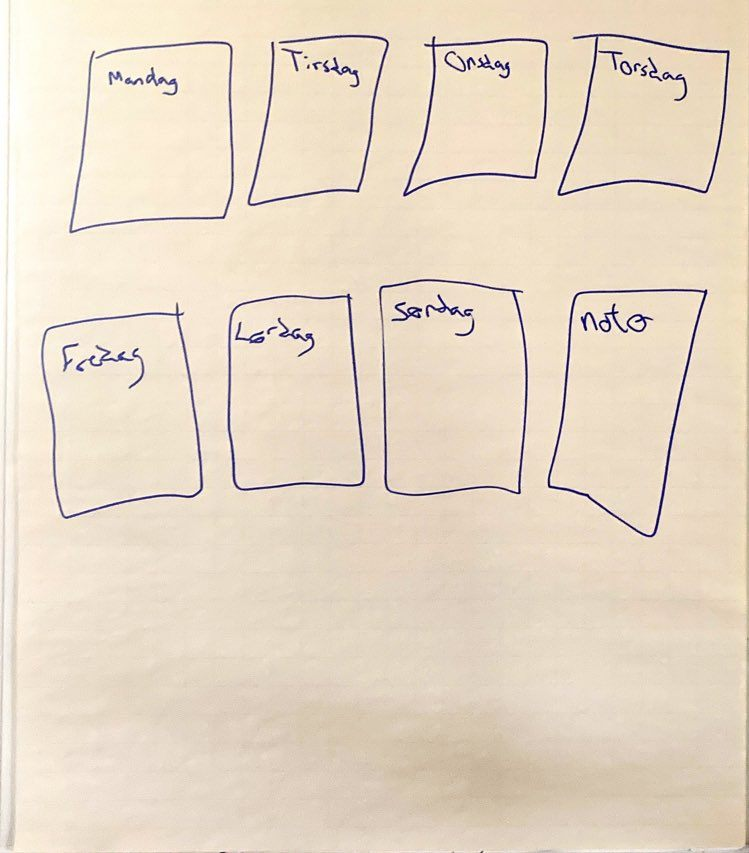 Mandag
Tirsdag
Onsdag
Torsdag
Fredag
Lørdag
Søndag
note